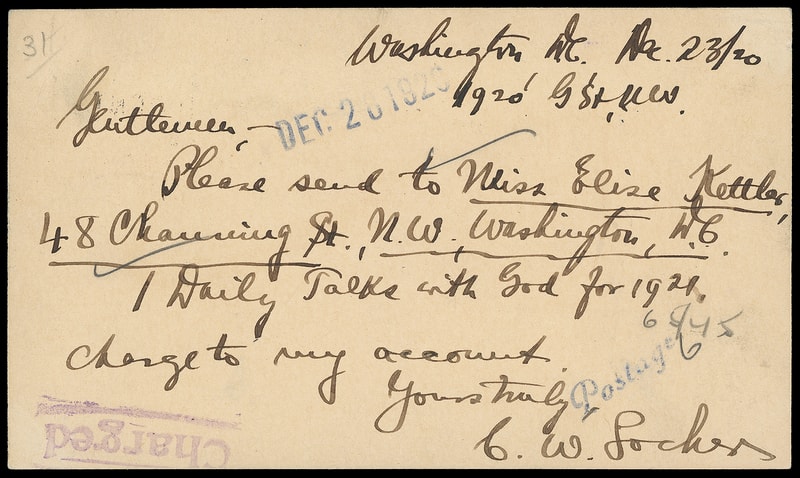 31
Washington, D.C. Dec. 23/20
1920 G St., N.W.
Gentlemen, —
DEC 2 1920
Please send to Miss Elise Kettler,
48 Channing St., N.W., Washington, D.C.
1 Daily Talks with God for 1921.
Charge to my account.
Postage 6
Yours truly,
C. W. Locher
Charged